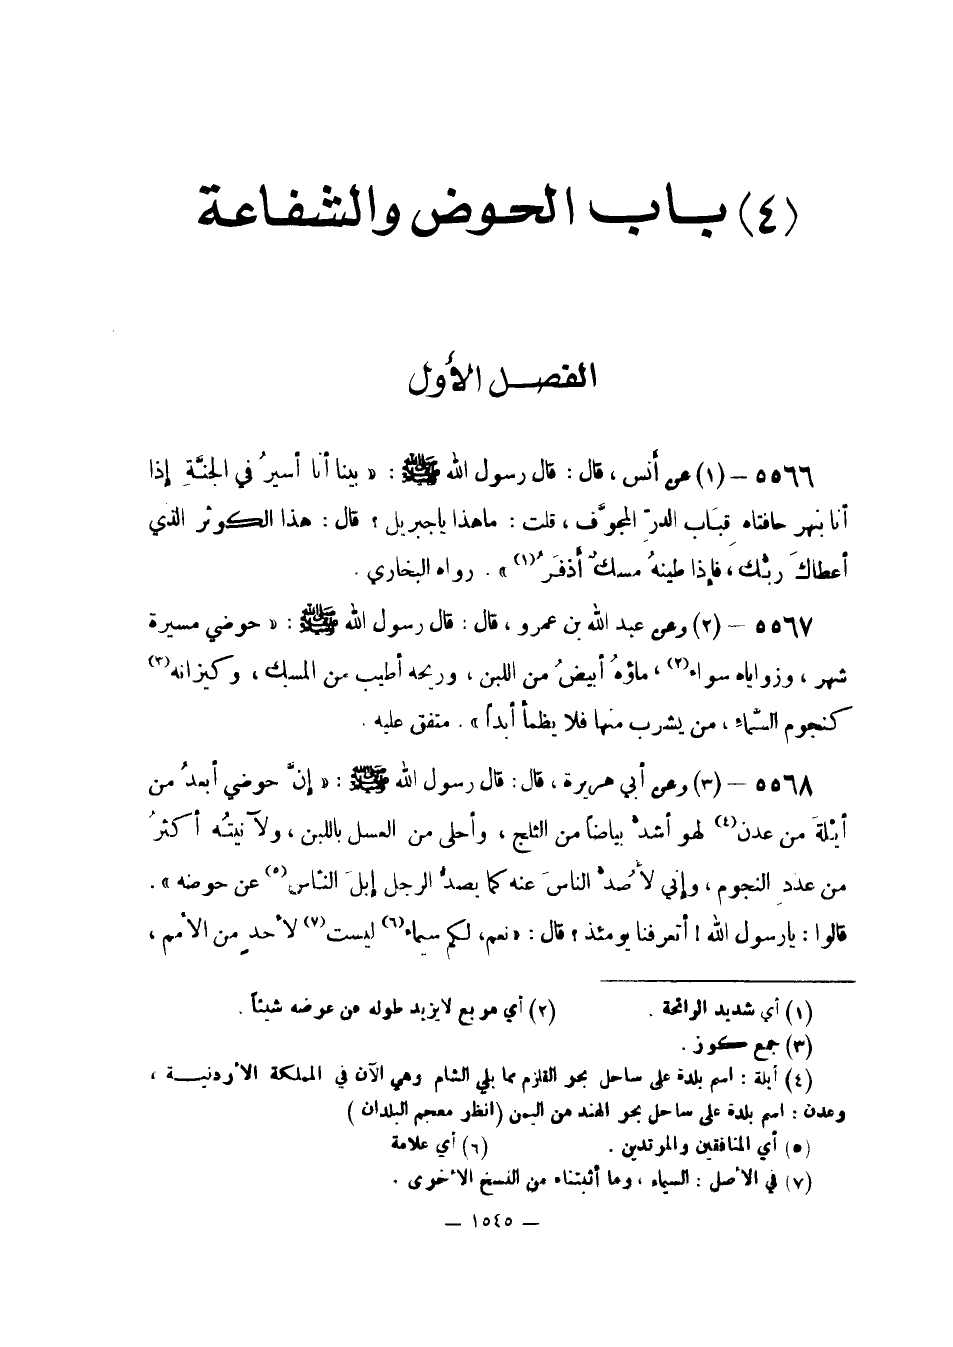 (٤) باب الحوض والشفاعة
الفصل الأول
٥٥٦٦ – (١) عن أَنس ، قال : قال رسول الله ﷺ : « بينا أنا أسيرُ في الجنَّةِ إذا
أنا بنهر حافتاه قِبَاب الدرِّ المجوَّف ، قلت : ماهذا ياجبريل ؟ قال : هذا الكوثر الذي
أعطاكَ ربُّك ، فإذا طينهُ مسكٌ أَذفَرُ(١) » . رواه البخاري .
٥٥٦٧ – (٢) وعن عبد الله بن عمرو ، قال : قال رسول الله ﷺ : « حوضي مسيرة
شهر ، وزواياه سواء(٢) ، ماؤهُ أبيضُ من اللبن ، وريحه أطيب من المسك ، وكيزانه(٣)
كنجوم السَّماءِ ، من يشرب منها فلا يظمأ أبداً » . متفق عليه .
٥٥٦٨ – (٣) وعن أبي هريرة ، قال : قال رسول الله ﷺ : « إنَّ حوضي أبعدُ من
أيْلةَ من عدن(٤) لهو أشدُّ بياضاً من الثلج ، وأحلى من العسل باللبن ، ولآنيتُه أكثرُ
من عددِ النجوم ، وإني لأَصُدُّ الناسَ عنه كما يصدُّ الرجل إبلَ النَّاس(٥) عن حوضه » .
قالوا : يارسول الله ! أتعرفنا يومئذ ؟ قال : « نعم، لكم سيماء(٦) ليست(٧) لأحدٍ من الأمم ،
(١) أي شديد الرائحة . (٢) أي مربع لايزيد طوله عن عرضه شيئاً .
(٣) جمع كوز .
(٤) أيلة : اسم بلدة على ساحل بحر القلزم مما يلي الشام وهي الآن في المملكة الأردنيـة ،
وعدن : اسم بلدة على ساحل بحر الهند من اليمن (انظر معجم البلدان )
(٥) أي المنافقين والمرتدين . (٦) أي علامة
(٧) في الأصل : السيماء ، وما أثبتناه من النسخ الأخرى .
– ١٥٤٥ –